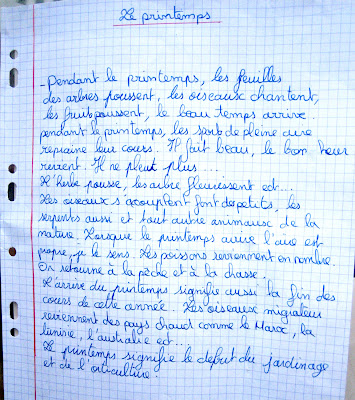 Le printemps
- Pendant le printemps, les feuilles
des arbres poussent, les oiseaux chantent,
les fruits poussent, le beau temps arrive.
pendant le printemps, les sports de pleine aire
reprene leur cours. Il fait beau, le bon heur
revient. Il ne pleut plus ....
L'herbe pousse, les arbre fleurissent ect...
Les oiseaux s'accouplent font des petits, les
serpents aussi et tout autre animause de la
nature. Lorsque le printemps arrive l'aire est
propre, je le sens. Les poissons reviennent en nombre.
On retourne à la pêche et à la chasse.
L'arrive du printemps signifie aussi la fin des
cours de cette année. Les oiseaux migrateur
reviennent des pays chaud comme le Maroc, la
tunisie, l'australie ect...
Le printemps signifie le debut du jardinage
et de l'orticulture.